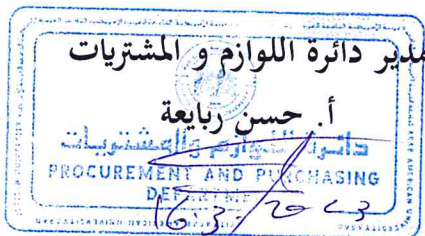 مدير دائرة اللوازم و المشتريات
أ. حسن ربايعة
دائرة اللوازم والمشتريات
PROCUREMENT AND PURCHASING
DEPARTME
16.3/2023